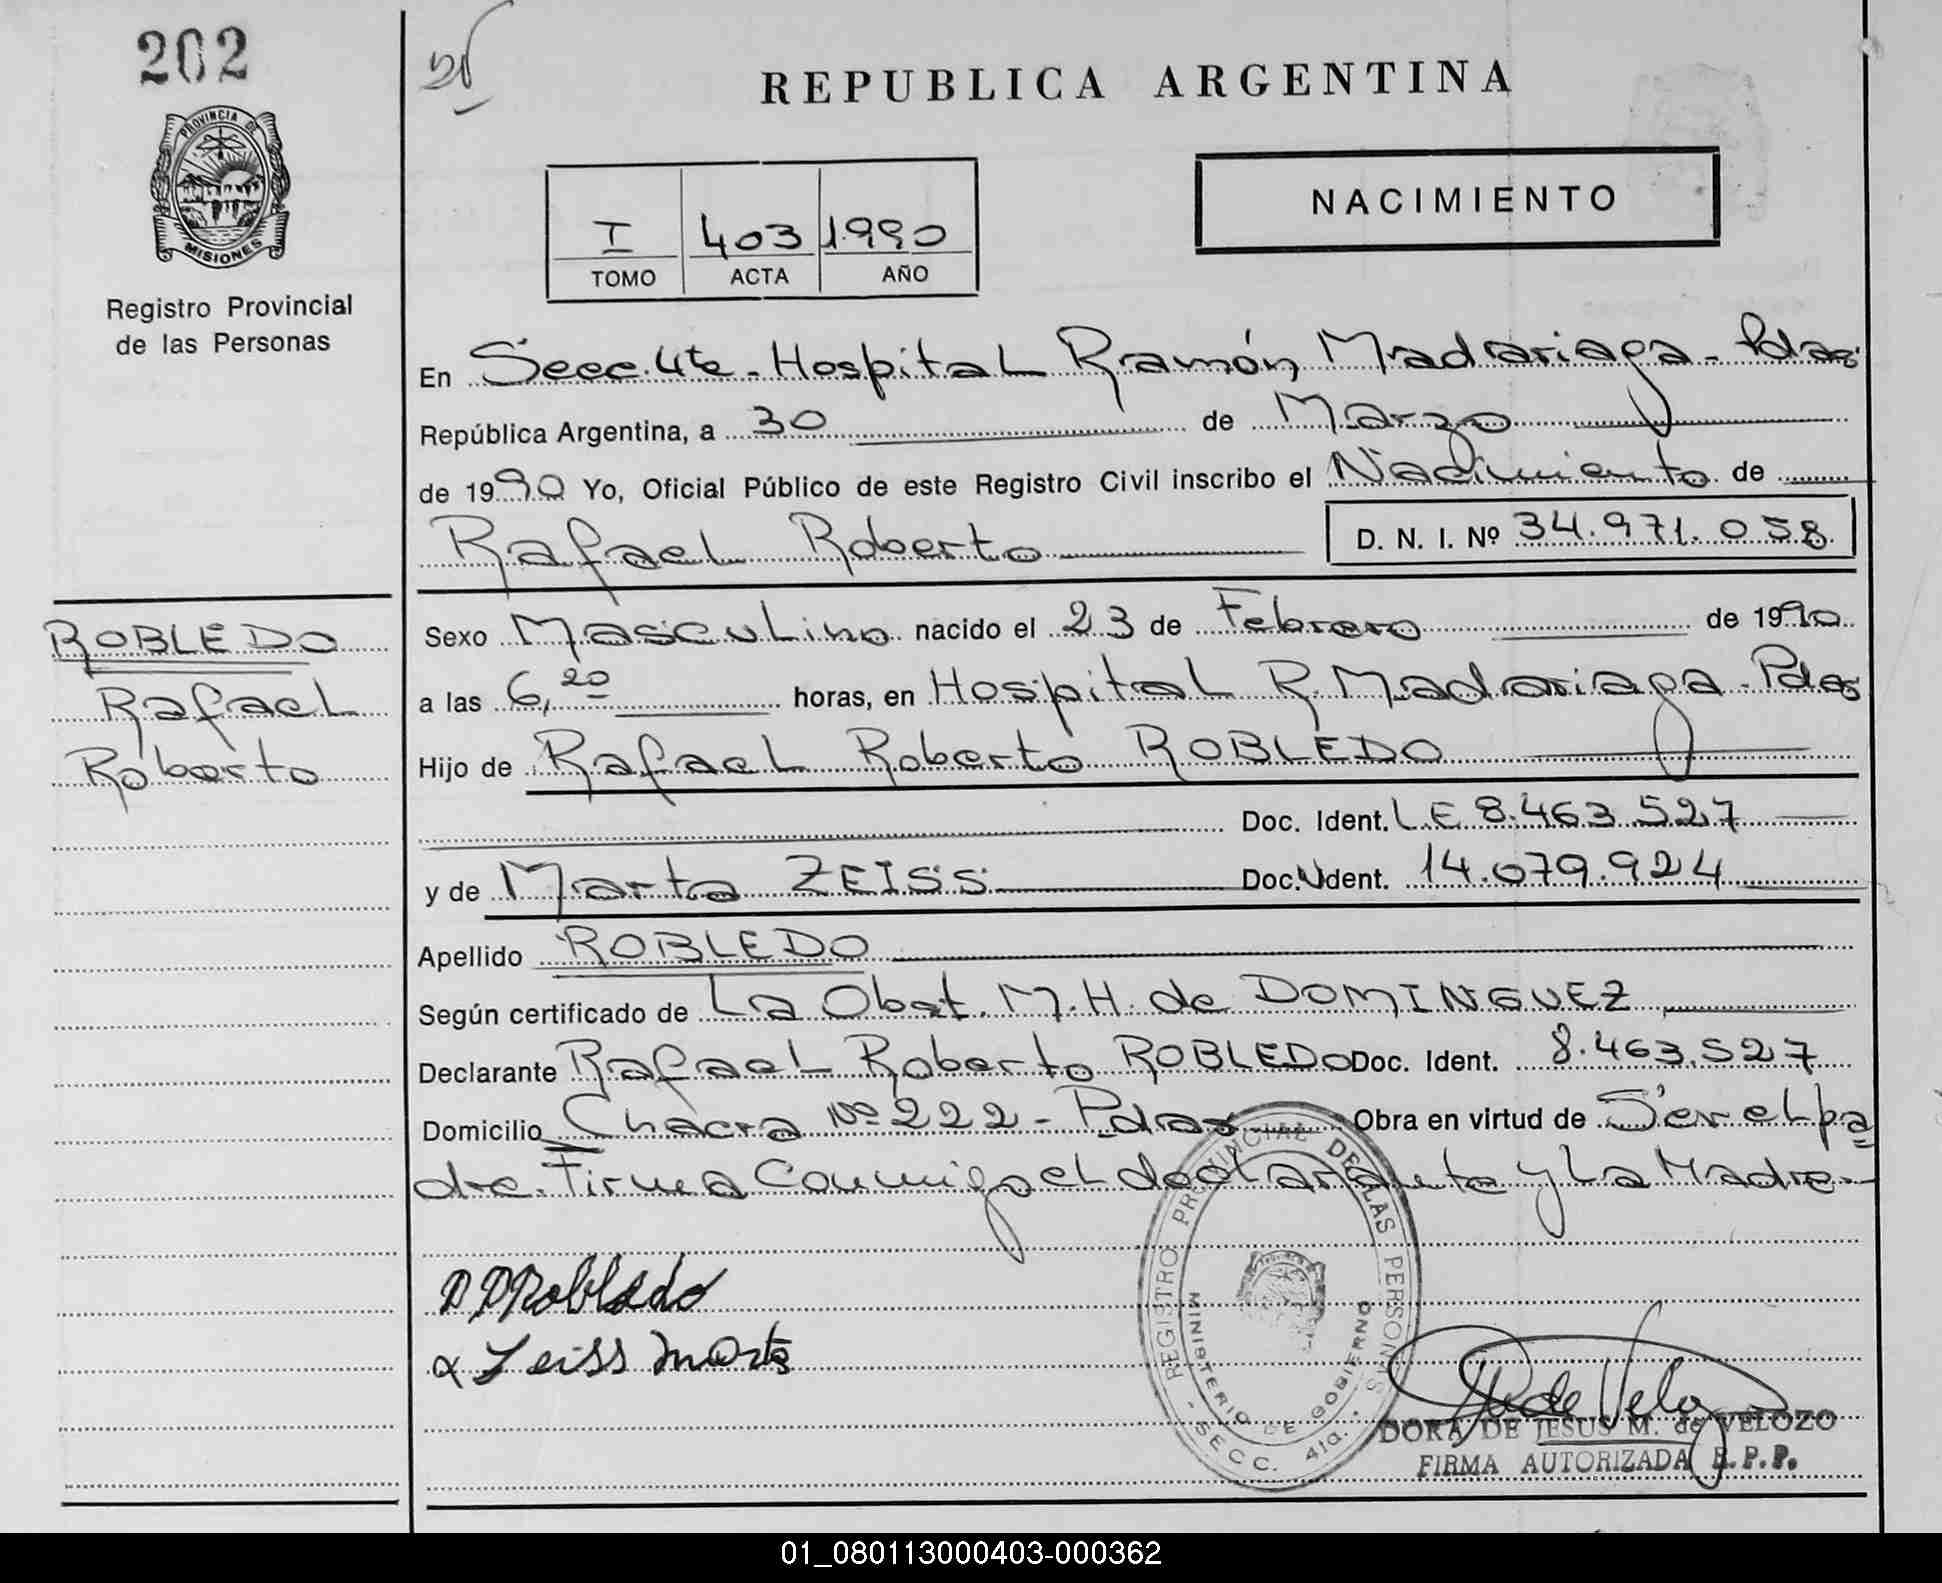 202
PROVINCIA DE
MISIONES
Registro Provincial
de las Personas
REPUBLICA ARGENTINA
I 403 1990
TOMO ACTA AÑO
NACIMIENTO
En Secc. 4ta - Hospital Ramón Madariaga - Pdas
República Argentina, a 30 de Marzo
de 1990 Yo, Oficial Público de este Registro Civil inscribo el Nacimiento de
Rafael Roberto D. N. I. Nº 34.971.058
ROBLEDO
Rafael
Roberto
Sexo Masculino nacido el 23 de Febrero de 1990
a las 6,20 horas, en Hospital R. Madariaga - Pdas
Hijo de Rafael Roberto ROBLEDO
Doc. Ident. L.E 8.463.527
y de Marta ZEISS Doc. Ident. 14.079.924
Apellido ROBLEDO
Según certificado de La Obst. M. H. de DOMINGUEZ
Declarante Rafael Roberto ROBLEDO Doc. Ident. 8.463.527
Domicilio Chacra Nº 222 - Pdas Obra en virtud de Ser el pa
dre. Firma Conmigo el declarante y La Madre -
Robledo
Zeiss Marta
REGISTRO PROVINCIAL DE LAS PERSONAS
MINISTERIO DE GOBIERNO
- SECC. 4ta. -
de Velozo
DORA DE JESUS M. de VELOZO
FIRMA AUTORIZADA R.P.P.
01_080113000403-000362